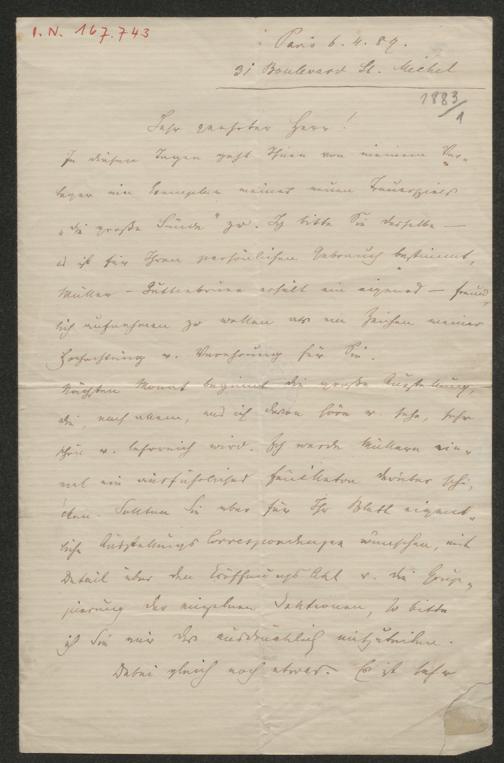 I.N. 167.743
Paris 6.4.89.
31 Boulevard St. Michel
1883/1
Sehr geehrter Herr!
In diesen Tagen geht Ihnen von meinem Ver-
leger ein Exemplar meines neuen Trauerspiels
„Die große Sünde“ zu. Ich bitte Sie dasselbe —
es ist für Ihren persönlichen Gebrauch bestimmt,
Müller-Guttenbrunn erhält ein eigenes — freund-
lich aufnehmen zu wollen als ein Zeichen meiner
Hochachtung u. Verehrung für Sie.
Nächsten Monat beginnt die große Ausstellung,
die, nach allem, was ich davon höre u. sehe, sehr
schön u. lehrreich wird. Ich werde Müllern ein-
mal ein ausführliches Feuilleton darüber schi-
cken. Sollten Sie aber für Ihr Blatt eigent-
liche Ausstellungs Correspondenzen wünschen, mit
Detail über den Eröffnungs Akt u. die Grup-
pierung der einzelnen Sektionen, so bitte
ich Sie mir das ausdrücklich mitzuteilen.
Dabei gleich noch etwas. Es ist sehr